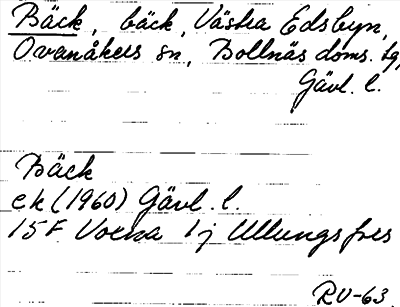 Bäck, bäck, Västra Edsbyn,
Ovanåkers sn, Bollnäs doms. tg,
Gävl. l.
Bäck
ek (1960) Gävl. l.
15F Voxna 1j Ullungsfors
RV-63